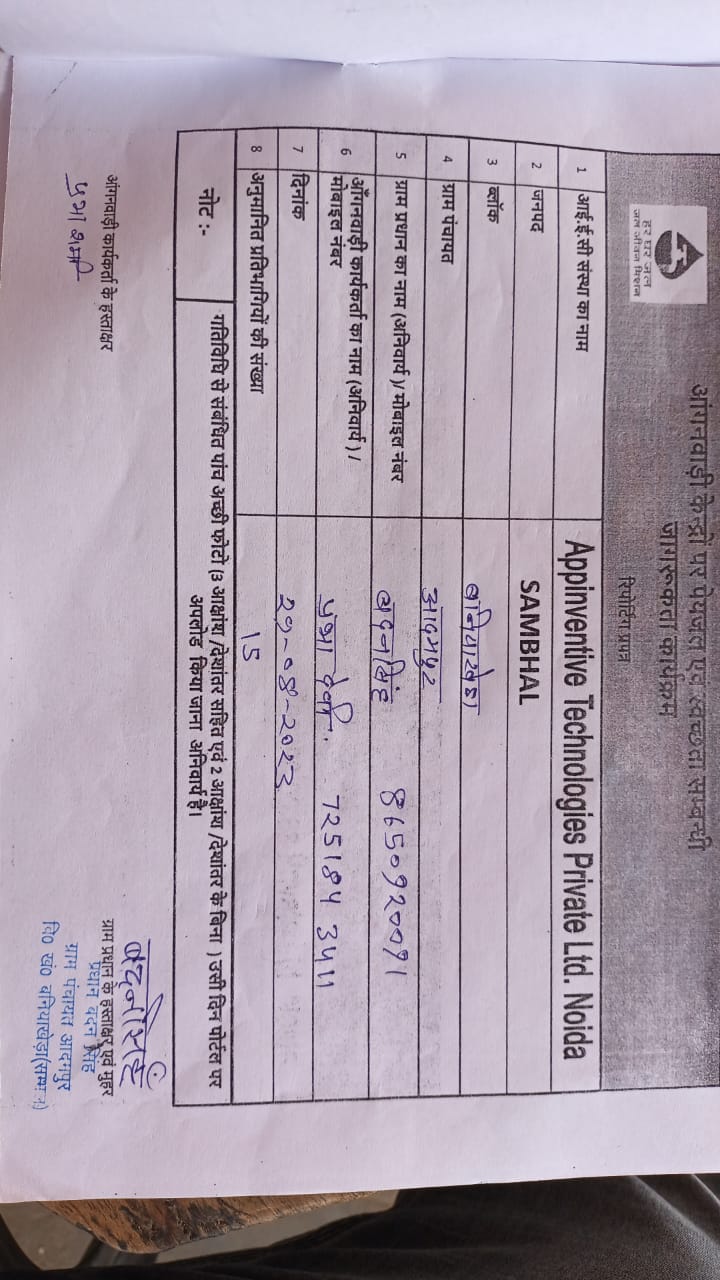 हर घर जल
जल जीवन मिशन
आंगनवाड़ी केन्द्रों पर पेयजल एवं स्वच्छता सम्बन्धी
जागरूकता कार्यक्रम
रिपोर्टिंग प्रपत्र
1 आई.ई.सी संस्था का नाम Appinventive Technologies Private Ltd. Noida
2 जनपद SAMBHAL
3 ब्लॉक बनियाखेडा
4 ग्राम पंचायत आदमपुर
5 ग्राम प्रधान का नाम (अनिवार्य )/ मोबाइल नंबर बदनसिंह 8650920091
6 आँगनवाड़ी कार्यकर्ता का नाम (अनिवार्य ) /
मोबाइल नंबर प्रभा देवी. 7251843411
7 दिनांक 29-08-2023
8 अनुमानित प्रतिभागियों की संख्या 15
नोट :- गतिविधि से संबंधित पांच अच्छी फोटो (3 आक्षांश /देशांतर सहित एवं 2 आक्षांश /देशांतर के बिना ) उसी दिन पोर्टल पर
अपलोड किया जाना अनिवार्य है।
बदनसिंह
आंगनवाड़ी कार्यकर्ता के हस्ताक्षर ग्राम प्रधान के हस्ताक्षर एवं मुहर
प्रधान बदन सिंह
ग्राम पंचायत आदमपुर
वि0 खं0 बनियाखेड़ा